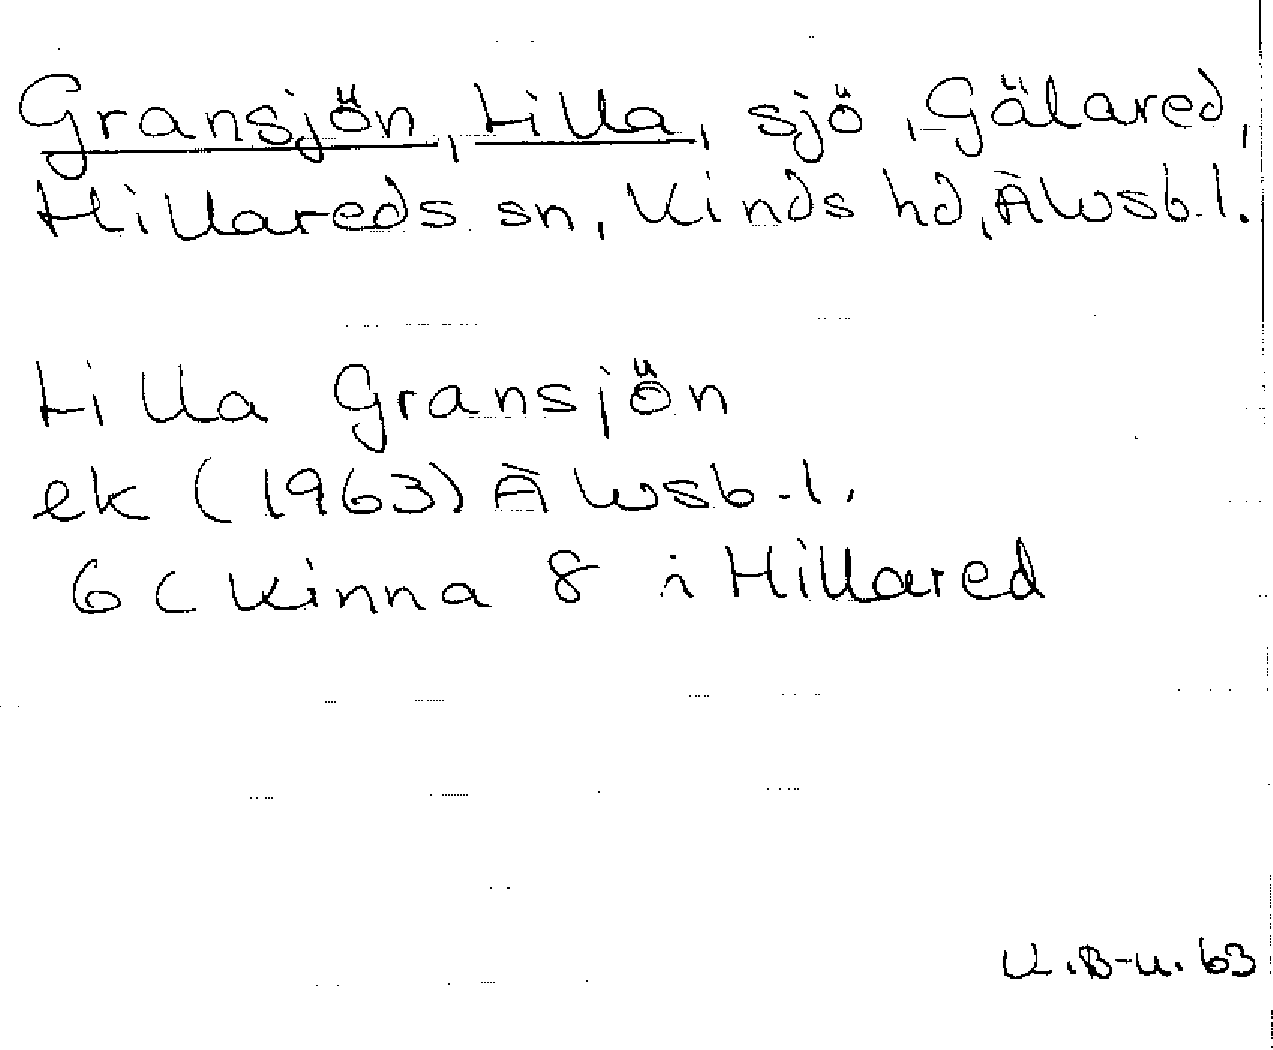 Gransjön, Lilla, sjö, Gälared,
Hillareds sn, Kinds hd, Älvsb. l.
Lilla Gransjön
ek (1963) Älvsb. l.
6 C Kinna 8 i Hillared
K.B-u. 63